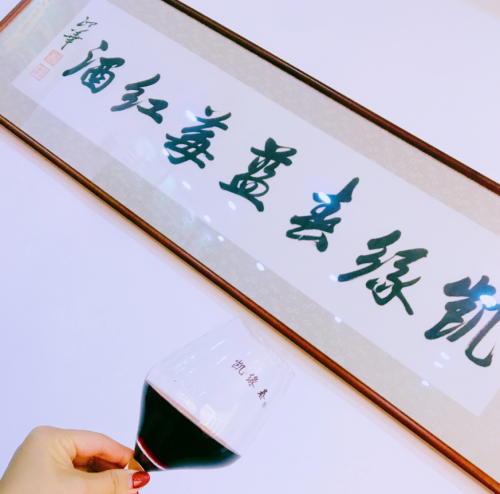 凯缘春蓝莓红酒
凯缘春